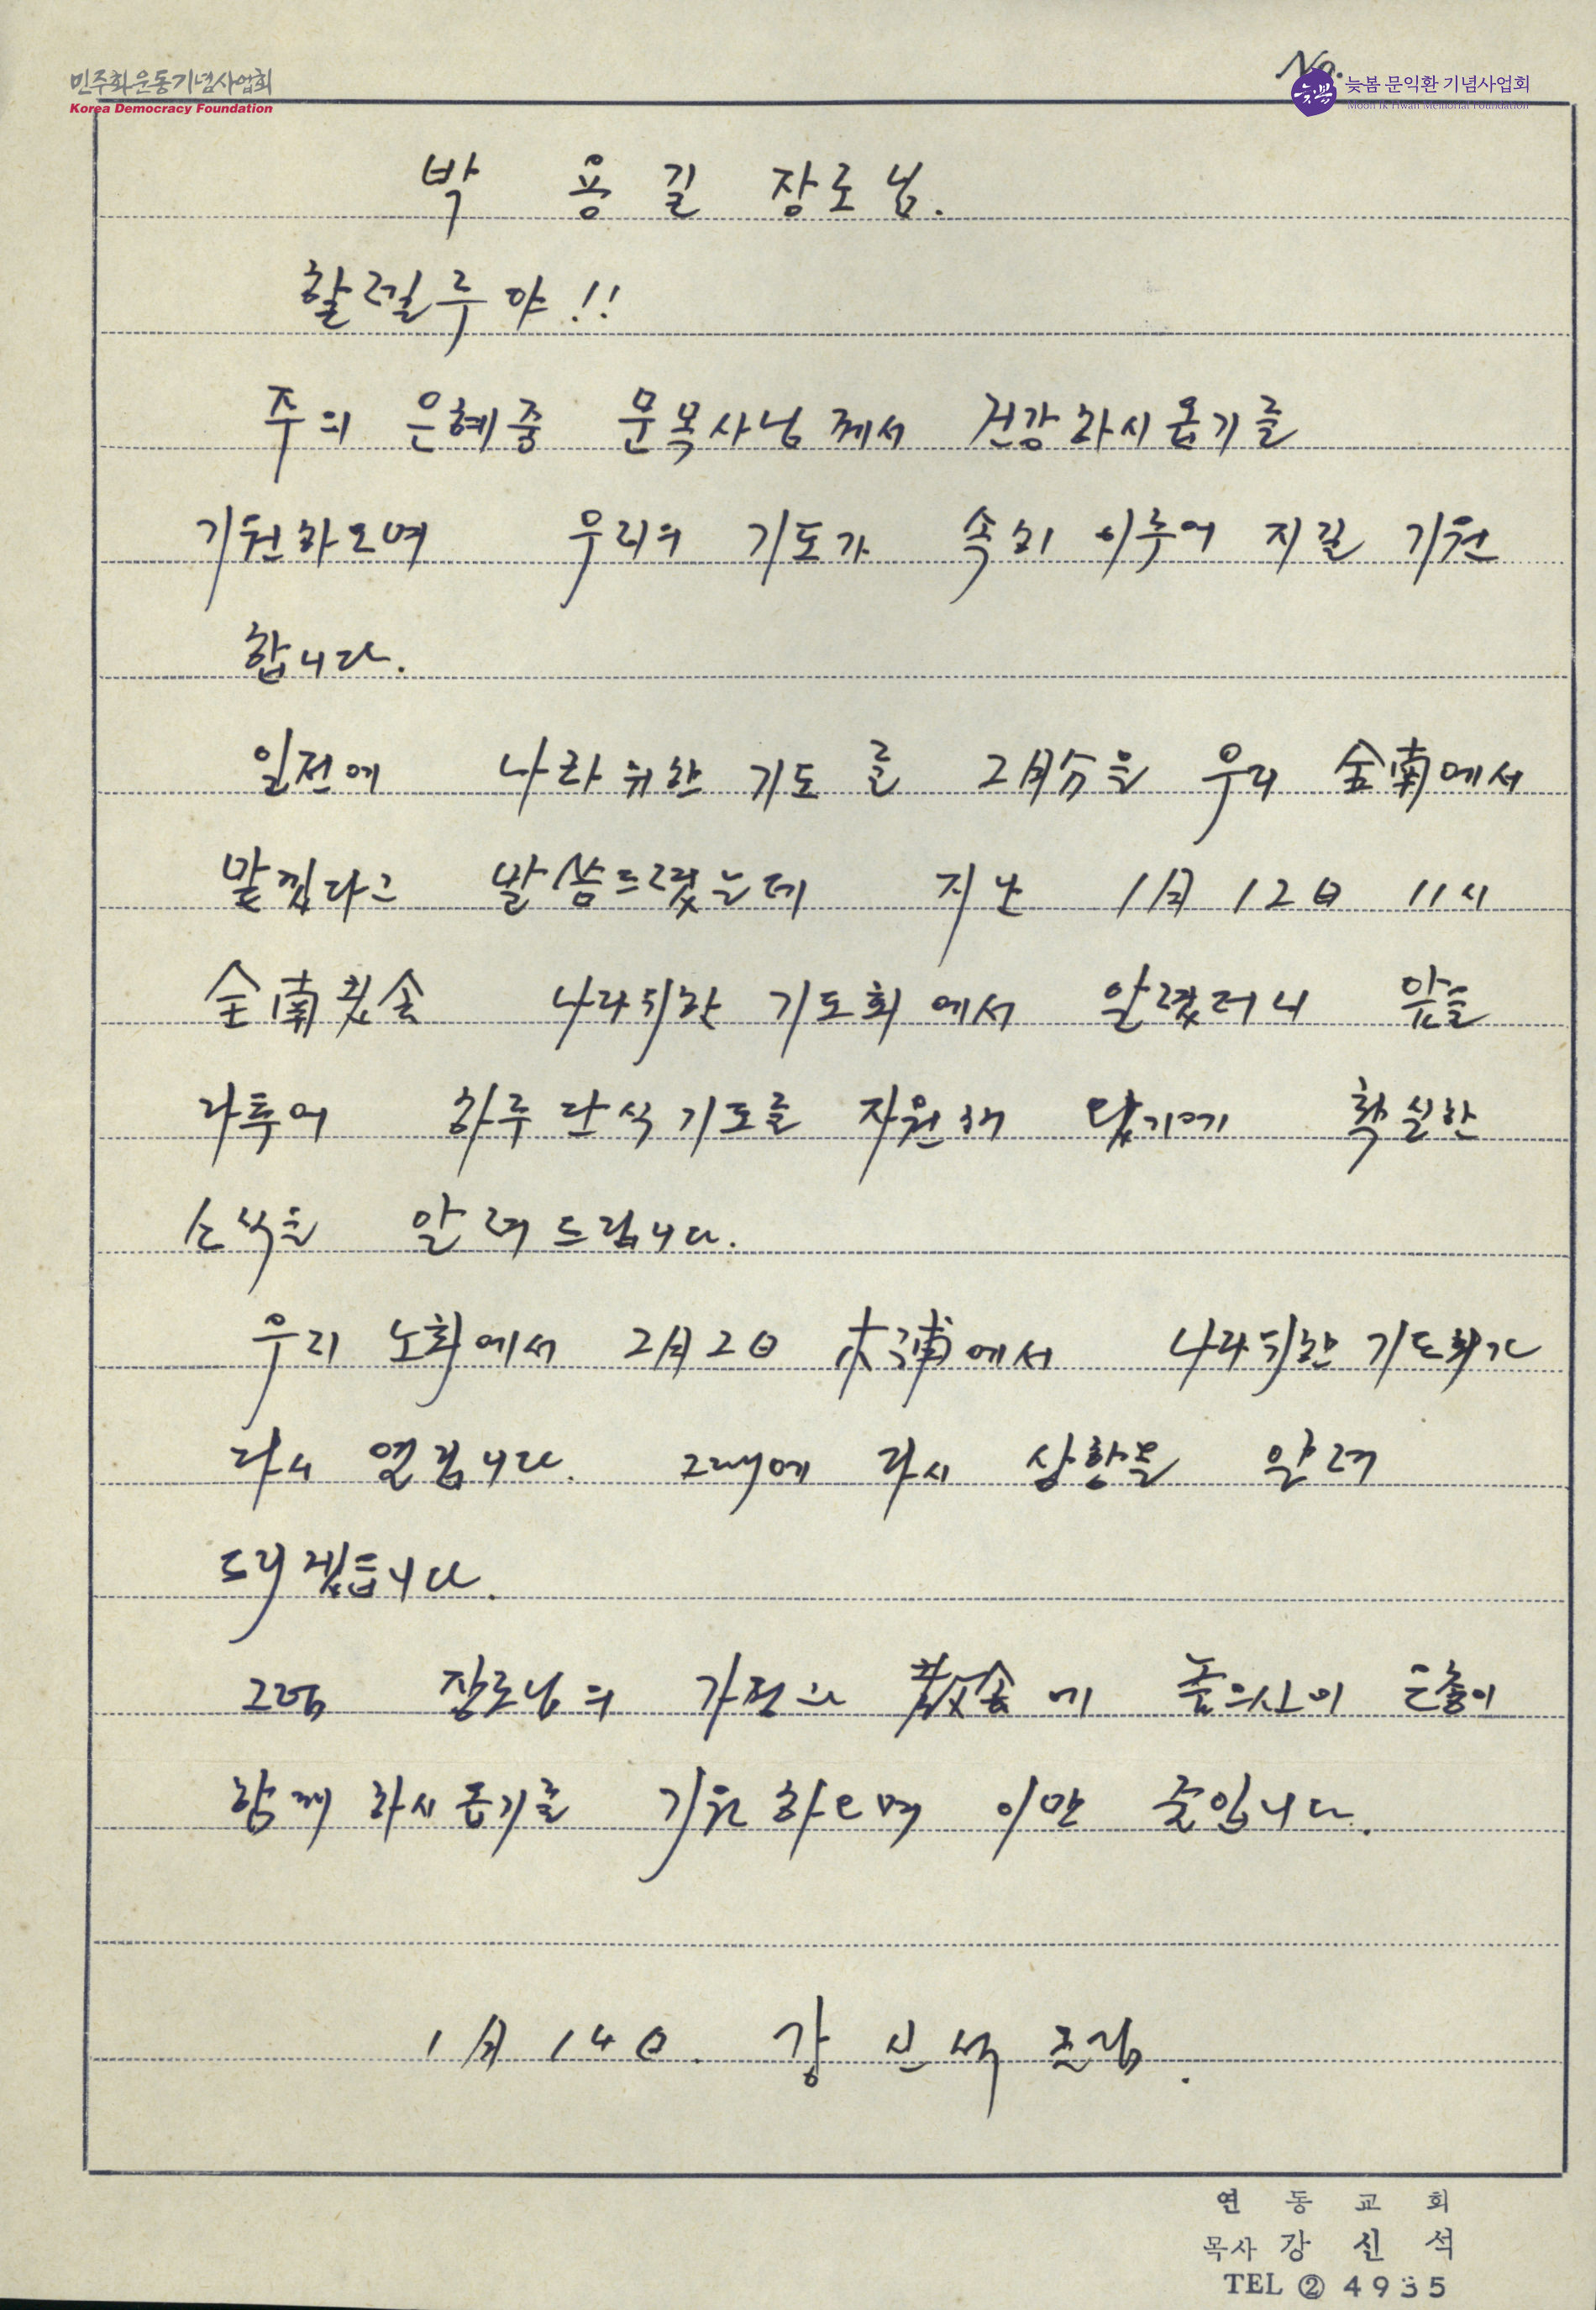 민주화운동기념사업회
Korea Democracy Foundation
No.
늦봄
늦봄 문익환 기념사업회
Moon Ik Hwan Memorial Foundation
박 용길 장로님.
할렐루야!!
주의 은혜중 문목사님께서 건강하시옵기를
기원하오며 우리의 기도가 속히 이루어 지길 기원
합니다.
일전에 나라위한 기도를 2月分을 우리 全南에서
맡겠다고 말씀드렸는데 지난 1月 12日 11시
全南 나라위한 기도회에서 알렸더니 앞을
다투어 하루 단식기도를 자원해 왔기에 확실한
소식을 알려드립니다.
우리 노회에서 2月 2日 木浦에서 나라위한 기도회가
다시 열립니다. 그때에 다시 상황을 알려
드리겠습니다.
그럼 장로님의 가정과 敎会에 주의 사랑이 은총이
함께 하시옵기를 기원하오며 이만 줄입니다.
1月 14日. 강 신석 드림.
연 동 교 회
목사 강 신 석
TEL ② 4935